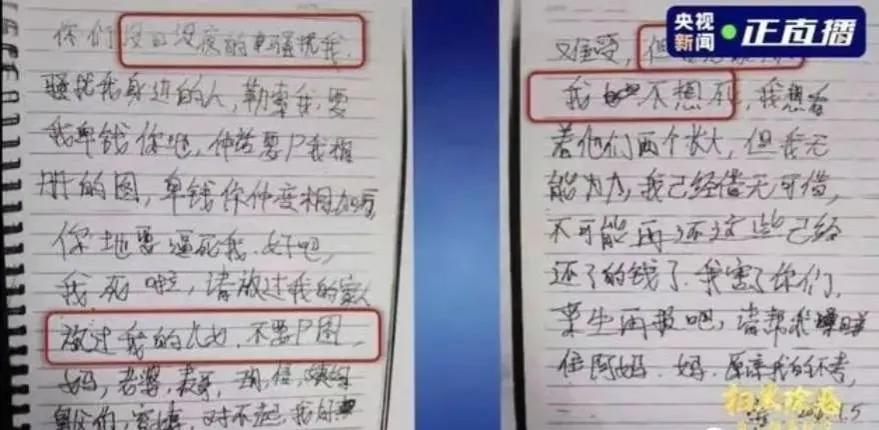 你们没日没夜的骚扰我,
骚扰我身边的人,勒索我,要
我畀钱你地,仲话要P我相
册的图,畀钱你仲度相加
你地要逼死我,好吧,
我死啦,请放过我的家人
放过我的儿女,不要P图,
妈,老婆,表哥,
对不起,我好
又难受,但
我不想死,我想看
着他们两个长大,但我无
能为力,我已经借无可借,
不可能再还这些已经
还了的钱了.我害了你们,
来生再报吧,请帮我
住阿妈.妈.原谅我的不孝,
1.5
央视新闻 正直播